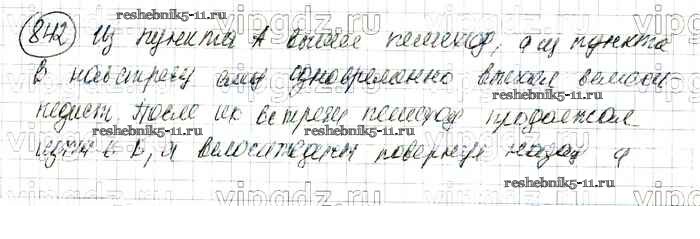 842 Из пункта А вышел пешеход, а из пункта
В навстречу ему одновременно выехал велоси
педист. После их встречи пешеход продолжал
идти в В, а велосипедист повернул назад и
reshebnik5-11.ru
reshebnik5-11.ru
reshebnik5-11.ru
reshebnik5-11.ru
reshebnik5-11.ru
vipgdz.ru
vipgdz.ru
vipgdz.ru